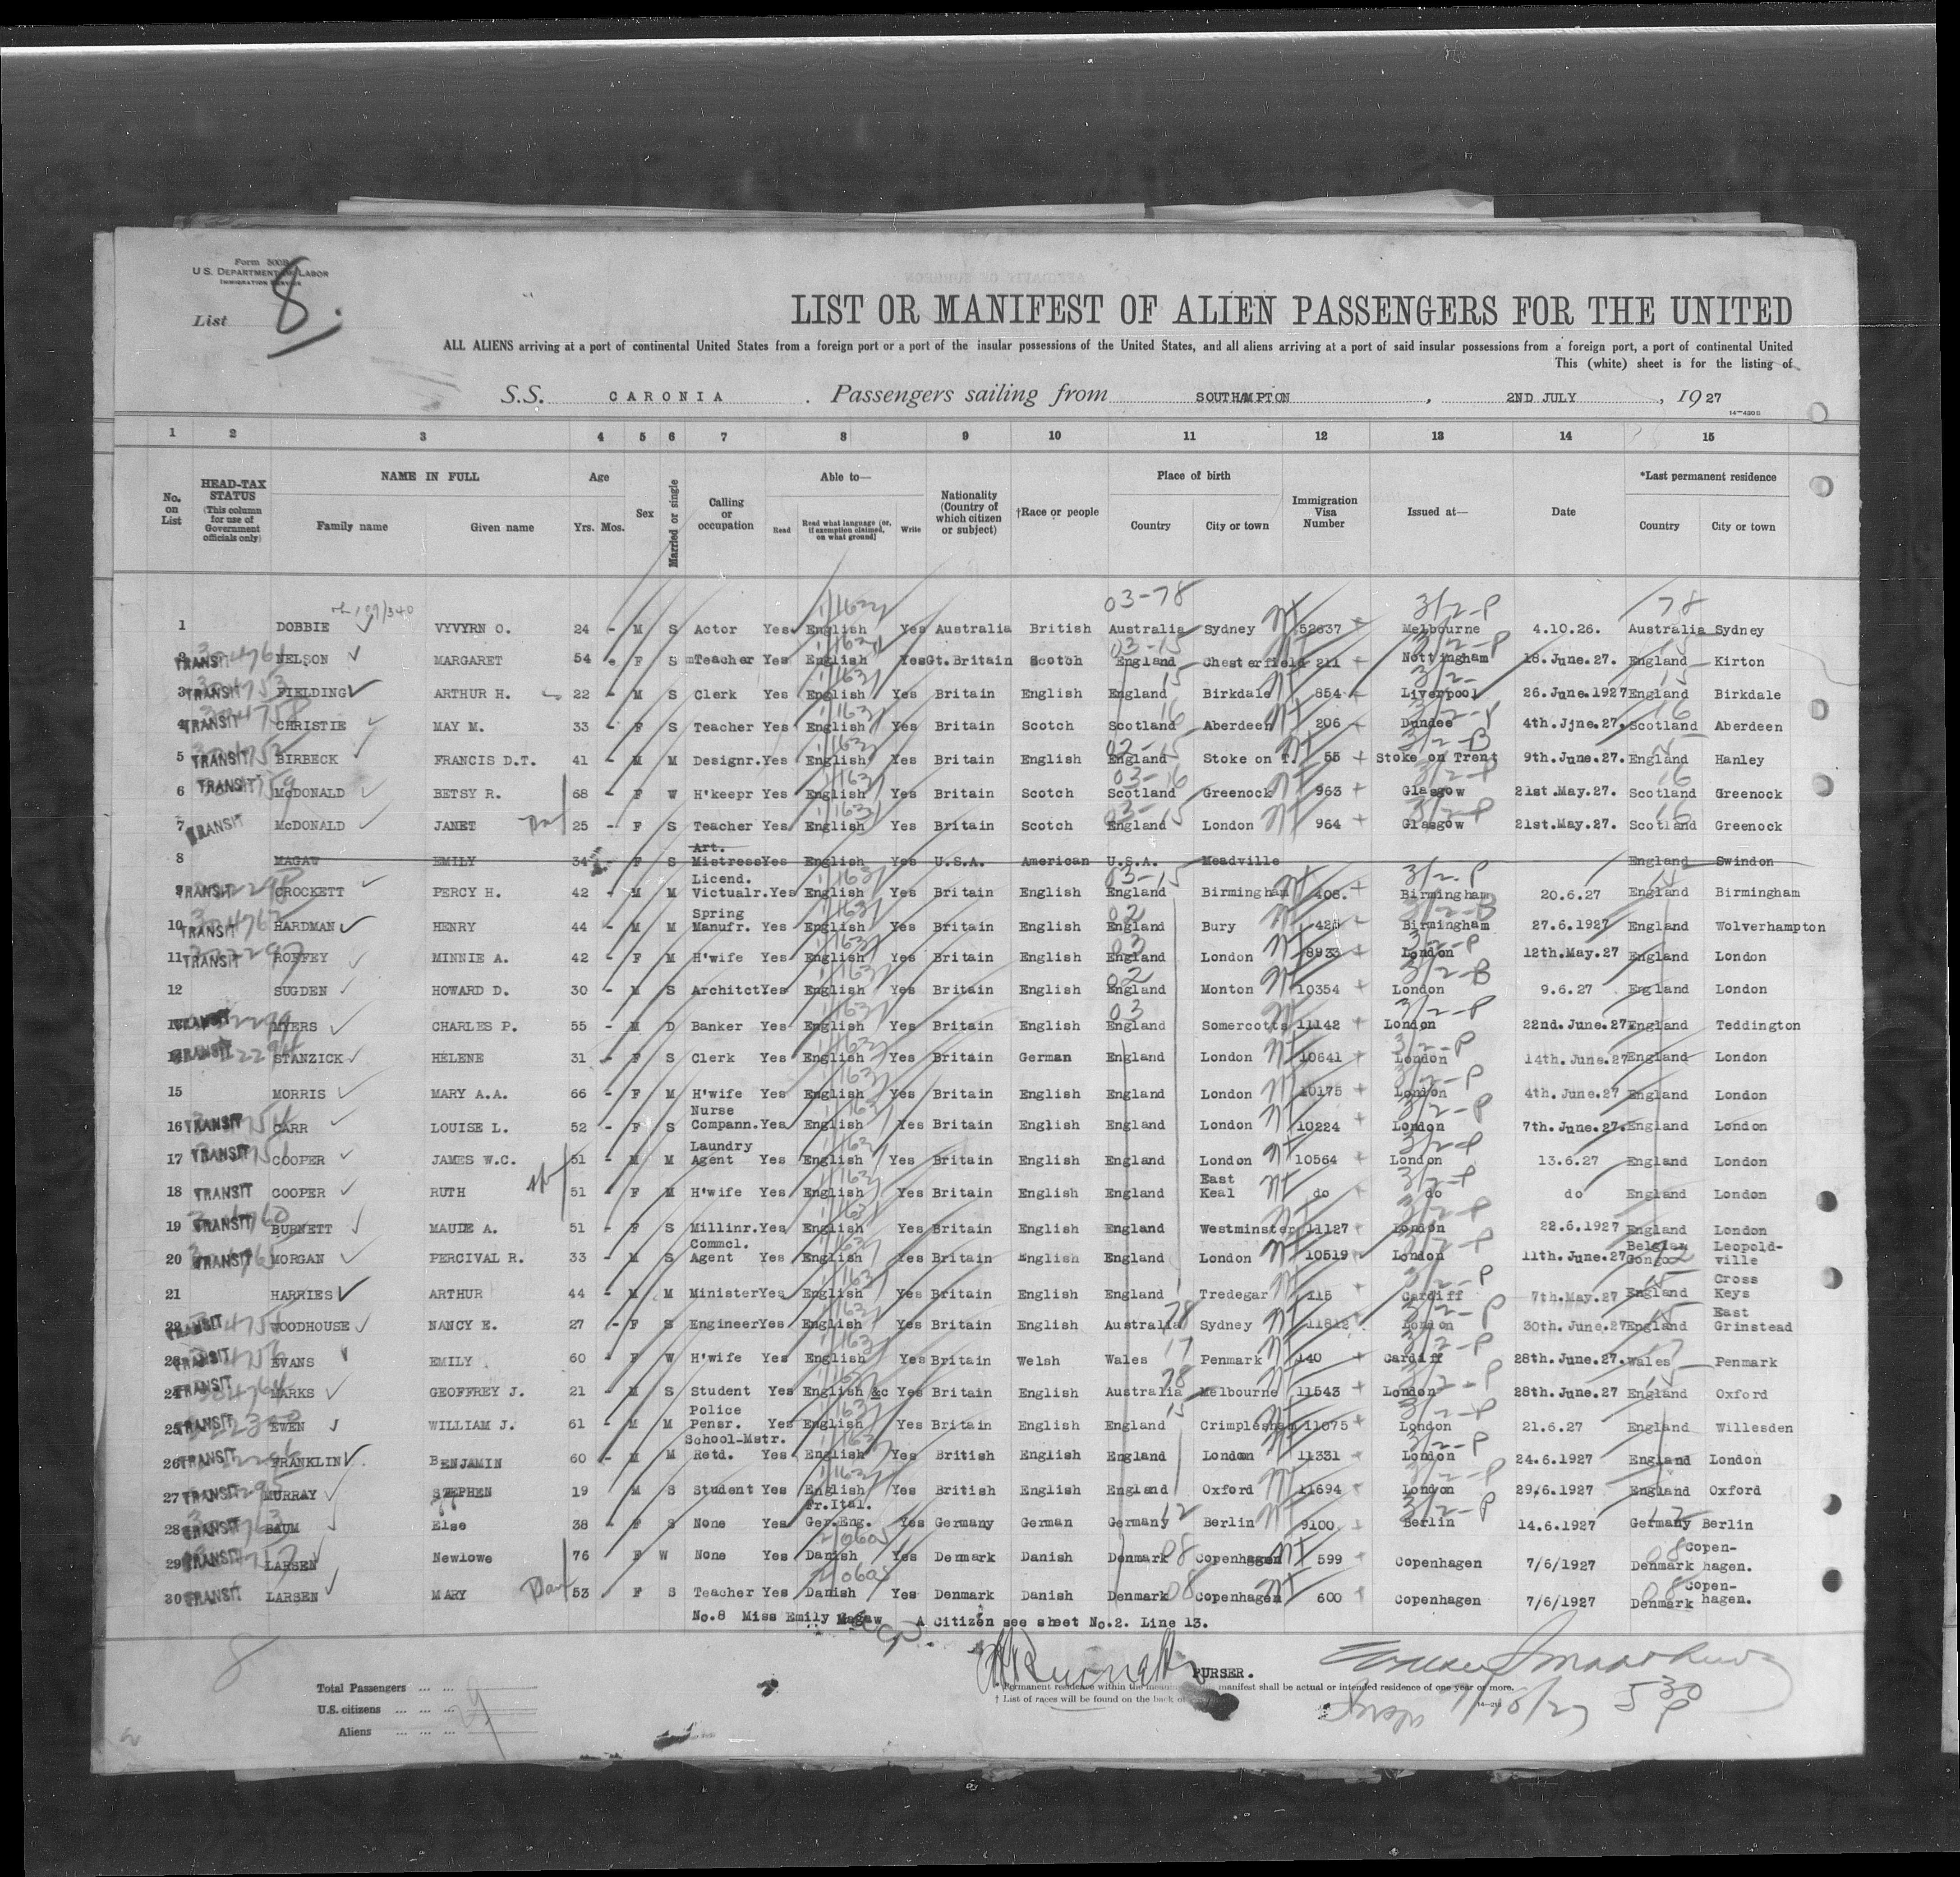 Form 500B
U.S. DEPARTMENT OF LABOR
IMMIGRATION SERVICE
List 8.
LIST OR MANIFEST OF ALIEN PASSENGERS FOR THE UNITED
ALL ALIENS arriving at a port of continental United States from a foreign port or a port of the insular possessions of the United States, and all aliens arriving at a port of said insular possessions from a foreign port, a port of continental United
This (white) sheet is for the listing of
S.S. CARONIA. Passengers sailing from SOUTHAMPTON, 2ND JULY, 1927
1 2 3 4 5 6 7 8 9 10 11 12 13 14 15
No. on List HEAD-TAX STATUS (This column for use of Government officials only) NAME IN FULL Family name Given name Age Yrs. Mos. Sex Married or single Calling or occupation Able to— Read Read what language (or, if exemption claimed, on what ground) Write Nationality (Country of which citizen or subject) †Race or people Place of birth Country City or town Immigration Visa Number Issued at— Date *Last permanent residence Country City or town
1 DOBBIE VYVYRN O. 24 - M S Actor Yes English Yes Australia British Australia Sydney 52637 Melbourne 4.10.26. Australia Sydney
2 TRANSIT NELSON MARGARET 54 F S Teacher Yes English Yes Gt.Britain Scotch England Chesterfield 211 Nottingham 18.June.27. England Kirton
3 TRANSIT FIELDING ARTHUR H. 22 - M S Clerk Yes English Yes Britain English England Birkdale 854 Liverpool 26.June.1927 England Birkdale
4 TRANSIT CHRISTIE MAY M. 33 - F S Teacher Yes English Yes Britain Scotch Scotland Aberdeen 206 Dundee 4th.Jjne.27. Scotland Aberdeen
5 TRANSIT BIRBECK FRANCIS D.T. 41 - M M Designr. Yes English Yes Britain English England Stoke on T. 55 Stoke on Trent 9th.June.27. England Hanley
6 TRANSIT McDONALD BETSY R. 68 - F W H'keepr Yes English Yes Britain Scotch Scotland Greenock 963 Glasgow 21st.May.27. Scotland Greenock
7 TRANSIT McDONALD JANET 25 - F S Teacher Yes English Yes Britain Scotch England London 964 Glasgow 21st.May.27. Scotland Greenock
8 MAGAW EMILY 34 F S Art. Mistress Yes English Yes U.S.A. American U.S.A. Meadville England Swindon
9 TRANSIT CROCKETT PERCY H. 42 - M M Licend. Victualr. Yes English Yes Britain English England Birmingham 408. Birmingham 20.6.27 England Birmingham
10 TRANSIT HARDMAN HENRY 44 - M M Spring Manufr. Yes English Yes Britain English England Bury Birmingham 27.6.1927 England Wolverhampton
11 TRANSIT ROFFEY MINNIE A. 42 - F M H'wife Yes English Yes Britain English England London 8933 London 12th.May.27 England London
12 SUGDEN HOWARD D. 30 - M S Architct Yes English Yes Britain English England Monton 10354 London 9.6.27 England London
13 TRANSIT MYERS CHARLES P. 55 - M D Banker Yes English Yes Britain English England Somercotts 11142 London 22nd.June.27 England Teddington
14 TRANSIT STANZICK HELENE 31 - F S Clerk Yes English Yes Britain German England London 10641 London 14th.June.27 England London
15 MORRIS MARY A.A. 66 - F M H'wife Yes English Yes Britain English England London 10175 London 4th.June.27 England London
16 TRANSIT CARR LOUISE L. 52 - F S Nurse Compann. Yes English Yes Britain English England London 10224 London 7th.June.27. England London
17 TRANSIT COOPER JAMES W.C. 51 - M M Laundry Agent Yes English Yes Britain English England London 10564 London 13.6.27 England London
18 TRANSIT COOPER RUTH 51 - F M H'wife Yes English Yes Britain English England East Keal do do do England London
19 TRANSIT BURNETT MAUDE A. 51 - F S Millinr. Yes English Yes Britain English England Westminster 11127 London 22.6.1927 England London
20 TRANSIT MORGAN PERCIVAL R. 33 - M S Commcl. Agent Yes English Yes Britain English England London 10519 London 11th.June.27 Belgian Congo Leopold-ville
21 HARRIES ARTHUR 44 - M M Minister Yes English Yes Britain English England Tredegar 115 Cardiff 7th.May.27 England Cross Keys
22 TRANSIT WOODHOUSE NANCY E. 27 - F S Engineer Yes English Yes Britain English Australia Sydney 11812 London 30th.June.27 England East Grinstead
23 TRANSIT EVANS EMILY 60 - F W H'wife Yes English Yes Britain Welsh Wales Penmark 140 Cardiff 28th.June.27. Wales Penmark
24 TRANSIT MARKS GEOFFREY J. 21 - M S Student Yes English &c Yes Britain English Australia Melbourne 11543 London 28th.June.27 England Oxford
25 TRANSIT EWEN WILLIAM J. 61 - M M Police Pensr. Yes English Yes Britain English England Crimplesham 11075 London 21.6.27 England Willesden
26 TRANSIT FRANKLIN BENJAMIN 60 - M M School-Mstr. Retd. Yes English Yes British English England London 11331 London 24.6.1927 England London
27 TRANSIT MURRAY STEPHEN 19 M S Student Yes English Yes British English England Oxford 11694 London 29.6.1927 England Oxford
28 BAUM Else 38 - F S None Yes Fr.Ital. Ger.Eng. Yes Germany German Germany Berlin 9100 Berlin 14.6.1927 Germany Berlin
29 TRANSIT LARSEN Newlowe 76 F W None Yes Danish Yes Denmark Danish Denmark Copenhagen 599 Copenhagen 7/6/1927 Denmark Copen-hagen.
30 TRANSIT LARSEN MARY 53 F S Teacher Yes Danish Yes Denmark Danish Denmark Copenhagen 600 Copenhagen 7/6/1927 Denmark Copen-hagen.
No.8 Miss Emily Magaw A Citizen see sheet No.2. Line 13.
PURSER.
Total Passengers
U.S. citizens
Aliens
29
Permanent residence within the meaning manifest shall be actual or intended residence of one year or more.
† List of races will be found on the back of